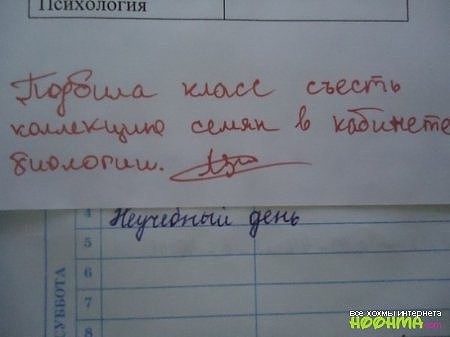 Психология
Подбила класс съесть
коллекцию семян в кабинете
биологии.
4 Неучебный день
5
6
7
8
СУББОТА
все хохмы интернета
HOOHMA.com